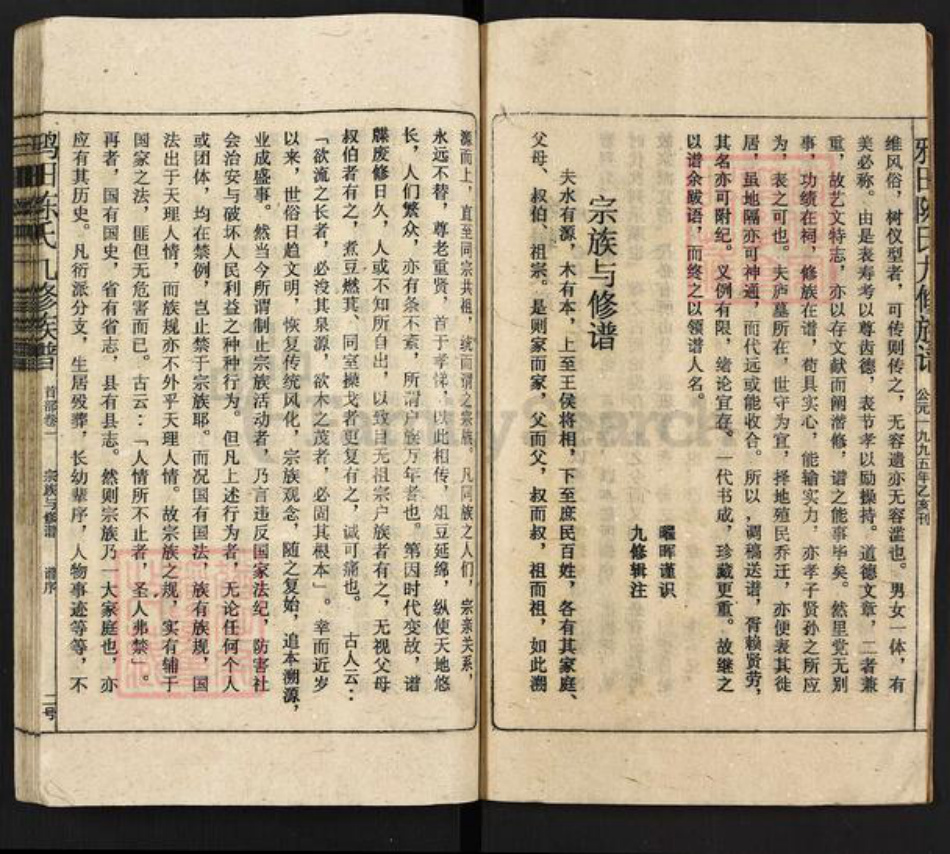 陈氏九修族谱
公元一九九五年乙亥刊
维风俗，树仪型者，可传则传之，无容遗亦无容滥也。男女一体，有
美必称。由是表寿考以尊齿德，表节孝以励操持。道德文章，二者兼
重，故艺文特志，亦以存文献而阐潜修，谱之能事毕矣。然里党无别
事，功绩在祠，修族在谱，苟具实心，能输实力，亦孝子贤孙之所应
为，表之可也。夫庐墓所在，世守为宜，择地殖民乔迁，亦便表其徙
居，虽地隔亦可神通，而代远或能收合。所以，调稿送谱，胥赖贤劳，
其名亦可附纪。又例有限，绪论宜存。一代书成，珍藏更重。故继之
以谱余跋语，而终之以领谱人名。
曜晖谨识
九修辑注
宗族与修谱
夫水有源，木有本，上至王侯将相，下至庶民百姓，各有其家庭、
父母、叔伯、祖宗。是则家而家，父而父，叔而叔，祖而祖，如此溯
源而上，直至同宗共祖，统而谓之宗族。凡同族之人们，宗亲关系，
永远不替，尊老重贤，首于孝悌，以此相传，俎豆延绵，纵使天地悠
长，人们繁众，亦有条不紊，所谓户族万年者也。第因时代变故，谱
牒废修日久，人或不知所自出，以致目无祖宗户族者有之，无视父母
叔伯者有之，煮豆燃萁、同室操戈者更复有之，诚可痛也。 古人云：
「欲流之长者，必浚其泉源，欲木之茂者，必固其根本」。幸而近岁
以来，世俗日趋文明，恢复传统风化，宗族观念，随之复始，追本溯源，
业成盛事。然当今所谓制止宗族活动者，乃言违反国家法纪，防害社
会治安与破坏人民利益之种种行为。但凡上述行为者，无论任何个人
或团体，均在禁例，岂止禁于宗族耶。而况国有国法，族有族规，国
法出于天理人情，而族规亦不外乎天理人情。故宗族之规，实有辅于
国家之法，匪但无危害而已。古云：「人情所不止者，圣人弗禁」。
再者，国有国史，省有省志，县有县志。然则宗族乃一大家庭也，亦
应有其历史。凡衍派分支，生居殁葬，长幼辈序，人物事迹等等，不
陈氏九修族谱
首部卷一
宗族与修谱
谱序
二号